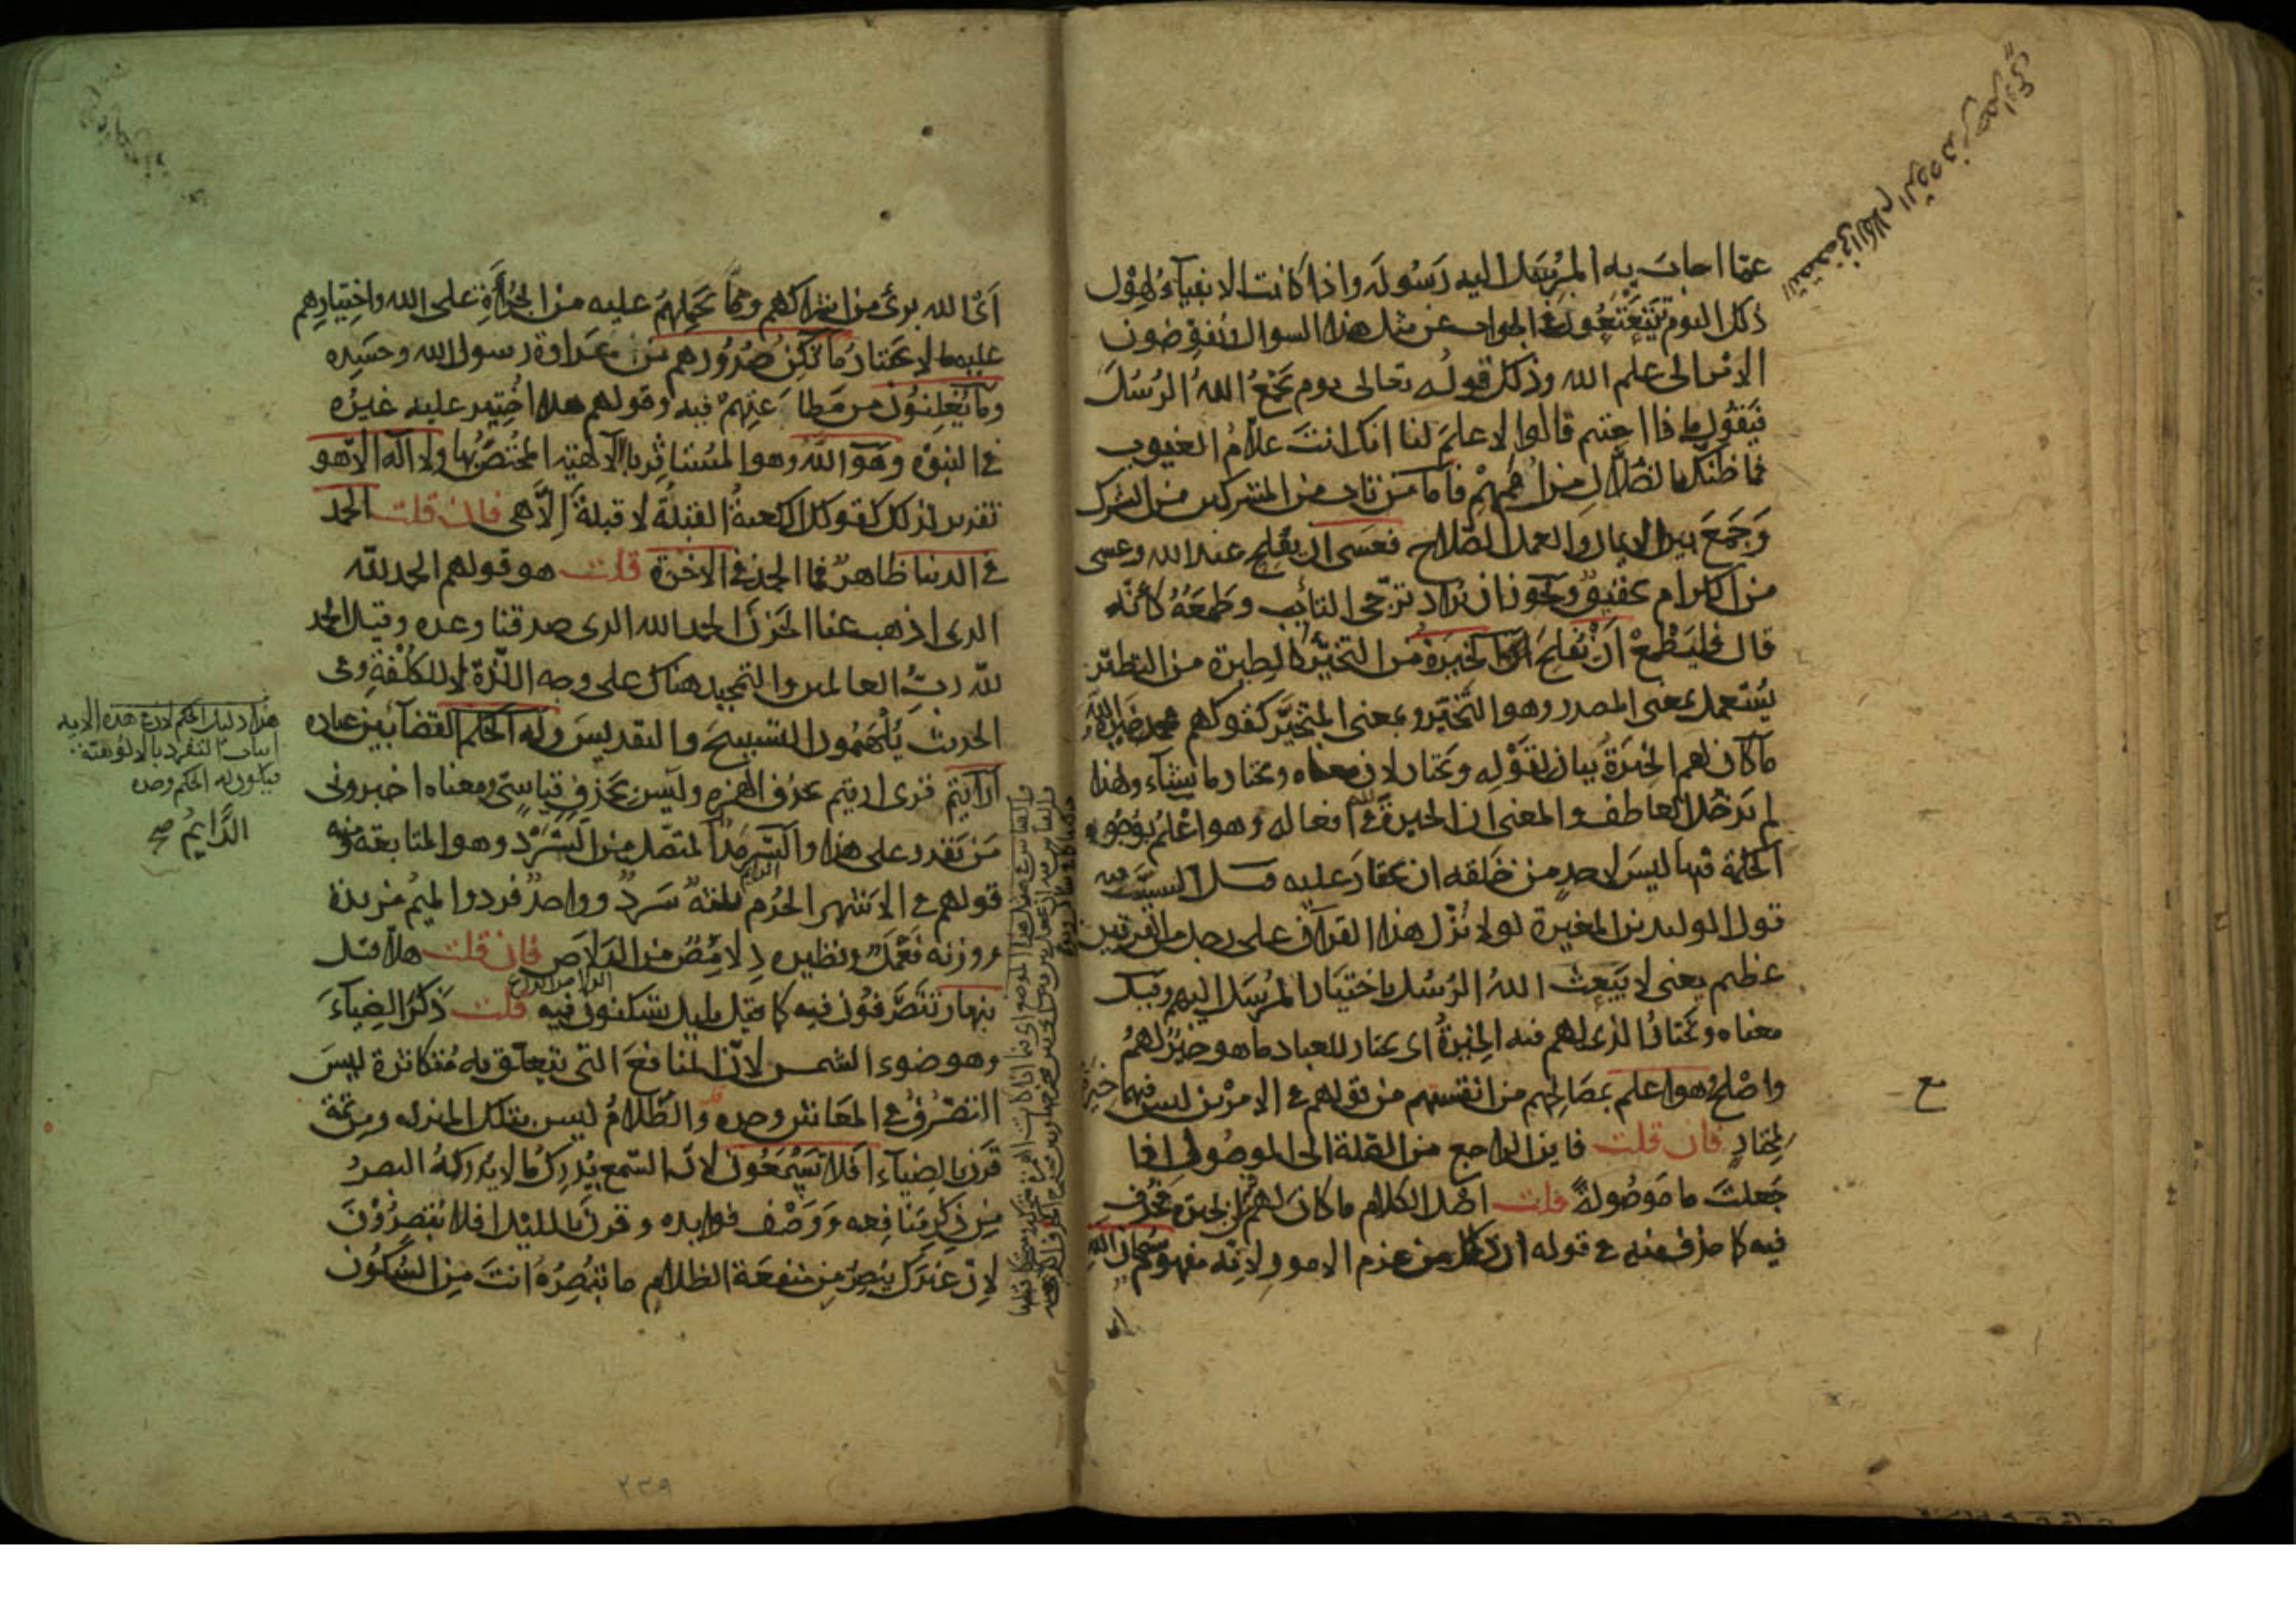 عمّا اجاب به المرسل اليه رسوله واذا كانت الانبياء لهول
ذلك اليوم يتتعتعون في الجواب عن مثل هذا السوال ويفوضون
الامر الى علم الله وذلك قوله تعالى يوم يجمع الله الرسل
فيقول ما ذا اجبتم قالوا لا علم لنا انك انت علام الغيوب
فما ظنك بالضلال من اممهم فاما من تاب من المشركين من الشرك
وجمع بين الايمان والعمل الصالح فعسى ان يفلح عند الله وعسى
من الكرام تحقيق ويجوز ان يراد ترجى التايب وطمعه كأنه
قال فليطمع أن يفلح الخيرة من التخيّر كالطيرة من التطيّر
يستعمل بمعنى المصدر وهو التخيّر وبمعنى المتخيّر كقولهم محمد خيرة الله
ما كان لهم الخيرة بيان لقوله ويختار لان معناه ويختار ما يشاء ولهذا
لم يدخل العاطف والمعنى ان الخيرة لله في افعاله وهو اعلم بوجوه
الحكمة فيها ليس لاحد من خلقه ان يختار عليه قيل السبب فيه
قول الوليد بن المغيرة لولا نزل هذا القرآن على رجل من القريتين
عظيم يعنى لا يبعث الله الرسل باختيار المرسل اليهم وقيل
معناه ويختار الذى لهم فيه الخيرة اى يختار للعباد ما هو خير لهم
واصلح وهو اعلم بمصالحهم من انفسهم من قولهم في الامرين ليس فيهما خيرة
لمختار فان قلت فاين الراجع من الصلة الى الموصول اذا
جعلت ما موصولة قلت اصل الكلام ما كان لهم فيه الخيرة فحذف
فيه كما حذف منه في قوله ان ذلك من عزم الامور لانه مفهوم سبحان الله
اى الله برئ من اشراكهم وما يحملهم عليه من الجرأة على الله واختيارهم
عليه ما لا يختار ما تكن صدورهم من عداوة رسول الله وحسده
وما يعلنون من مطاعنهم فيه وقولهم هلا اختير عليه غيره
في النبوّة وهو الله وهو المستاثر بالالهية المختص بها ولا اله الا هو
تقرير لذلك كقولك الكعبة القبلة لا قبلة الّا هى فان قلت الحمد
في الدنيا ظاهر فما الحمد في الاخرة قلت هو قولهم الحمد لله
الذى اذهب عنا الحزن الحمد لله الذى صدقنا وعده وقيل الحمد
لله رب العالمين والتحميد هناك على وجه اللذة لا للكلفة وفى
الحديث يلهمون التسبيح والتقديس وله الحكم القضا بين عباده
أرأيتم قرى اريتم بحذف الهمزه وليس بحذف قياسى ومعناه اخبرونى
من يقدر على هذا والسرمد الدايم المتصل من السرد وهو المتابعة ومنه
قولهم في الاشهر الحرم ثلثه سرد وواحد فرد والميم مزيدة
ووزنه فعمل ونظيره دلامص من الدلاص فان قلت هلا قيل
بنهار تتصرفون فيه كما قيل بليل تسكنون فيه قلت ذكر الضياء
وهو ضوء الشمس لان المنافع التى تتعلق به متكاثرة ليس
التصرف في المعاش وحده والظلام ليس بتلك المنزله ومن ثمة
قرن بالضياء افلا تسمعون لان السمع يدرك ما لا يدركه البصر
من ذكر منافعه ووصف فوايده وقرن بالليل افلا تبصرون
لان غيرك يبصر من منفعة الظلام ما تبصره انت من السكون
هذا دليل الحكم لان في هذه الايه
اثبات التفرد بالالوهية
فيكون له الحكم وحده
الدايم صح
٢٣٩